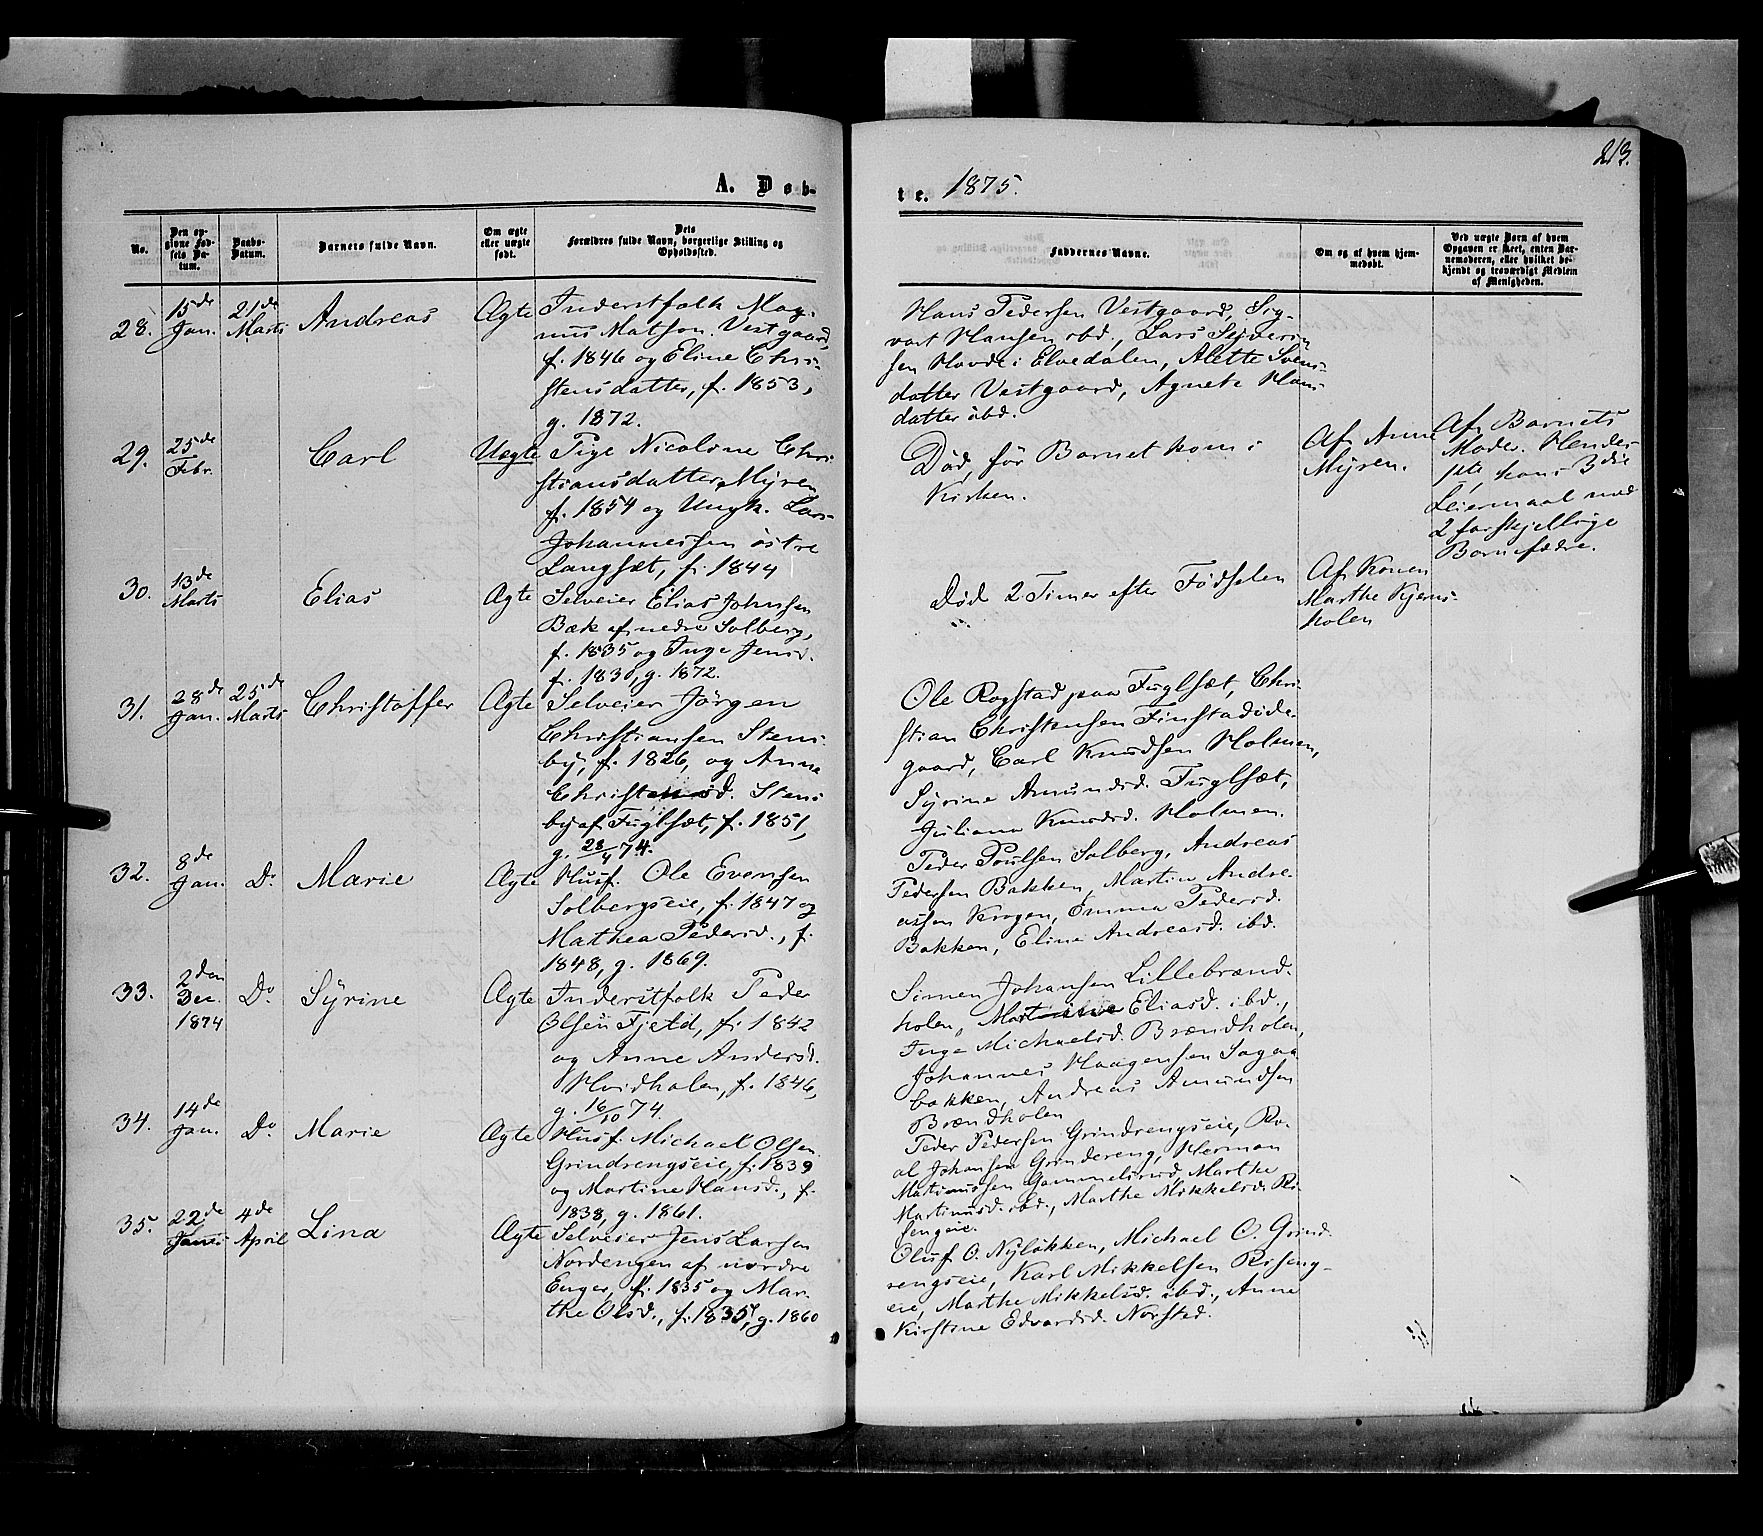 213.
A. Døb-
te. 1875.
No.
Den op-
givne Fød-
sels Da-
tum.
Daabs-
Datum.
Barnets fulde Navn.
Om ægte
eller uægte
født.
Dets
Forældres fulde Navn, borgerlige Stilling og
Opholdssted.
Faddernes Navne.
Om og af hvem hjem-
medøbt.
Ved uægte Børn af hvem
Opgaven er skeet, enten Bar-
nemoderen, eller hvilket be-
kjendt og troværdigt Medlem
af Menigheden.
28.
15de
Jan.
21de
Marts
Andreas
Ægte
Inderstfolk Mag-
nus Matson Vestgaard,
f. 1846 og Eline Chri-
stensdatter, f. 1853,
g. 1872.
Hans Pedersen Vestgaard, Sig-
vart Hansen ibd., Lars Syverin-
sen Hovde i Elvedalen, Alette Svens-
datter Vestgaard, Agnete Hans-
datter ibd.
29.
25de
Febr.
Carl
Uægte
Pige Nicoline Chri-
stiansdatter Myren
f. 1854 og Ungk. Lars
Johannessen østre
Langsæt, f. 1844
Død, før Barnet kom i
Kirken.
Af Anne
Myren.
Af Barnets
Moder. Hendes
1ste, hans 3die
Leiermaal med
2 forskjellige
Barnefædre.
30.
13de
Marts
Elias
Ægte
Selveier Elias Johnsen
Bæk af nedre Solberg,
f. 1835 og Inge Jensd.
f. 1830, g. 1872.
Død 2 Timer efter Fødselen
Af Konen
Marthe Kjerns-
holen
31.
28de
Jan.
25de
Marts
Christoffer
Ægte
Selveier Jörgen
Christiansen Stens-
by, f. 1826, og Anne
Christensd. Stens-
by af Fuglsæt, f. 1851,
g. 28/4 74.
Ole Rogstad paa Fuglsæt, Chri-
stian Christensen Finstadøde-
gaard, Carl Knudsen Holmen,
Syrine Amundsd. Fuglsæt,
Juliana Knudsd. Holmen.
32.
8de
Jan.
Do
Marie
Ægte
Husf. Ole Evensen
Solbergseie, f. 1847 og
Mathea Pedersd., f.
1848, g. 1869.
Peder Poulsen Solberg, Andreas
Pedersen Bakken, Martin Andre-
assen Krogen, Emma Pedersd.
Bakken, Eline Andreasd. ibd.
33.
2den
Dec.
1874
Do
Syrine
Ægte
Inderstfolk Peder
Olsen Fjeld, f. 1842
og Anne Andersd.
Hvidholen, f. 1846,
g. 16/10 74.
Simen Johansen Lillebrænd-
holen, Martinine Eliasd. ibd.,
Inge Michaelsd. Brændholen,
Johannes Haagensen Sagaa-
bakken, Andreas Amundsen
Brændholen
34.
14de
Jan.
Do
Marie
Ægte
Husf. Michael Olsen
Grindrengseie, f. 1839
og Martine Hansd., f.
1838, g. 1861.
Peder Pedersen Grindrengseie, Ro-
al Johansen Grindereng, Herman
Martinussen Gammelsrud, Marthe
Martinusd. ibd., Marthe Mikkelsd. Ri-
sengeie.
35.
22de
4de
April
Lina
Ægte
Selveier Jens Larsen
Nordengen af nordre
Enger, f. 1835 og Mar-
the Olsd., f. 1835, g. 1860
Oluf O. Nyløkken, Michael O. Grind-
rengseie, Karl Mikkelsen Riseng-
eie, Marthe Mikkelsd. ibd., Anne
Kirstine Edvardsd. Norsted.